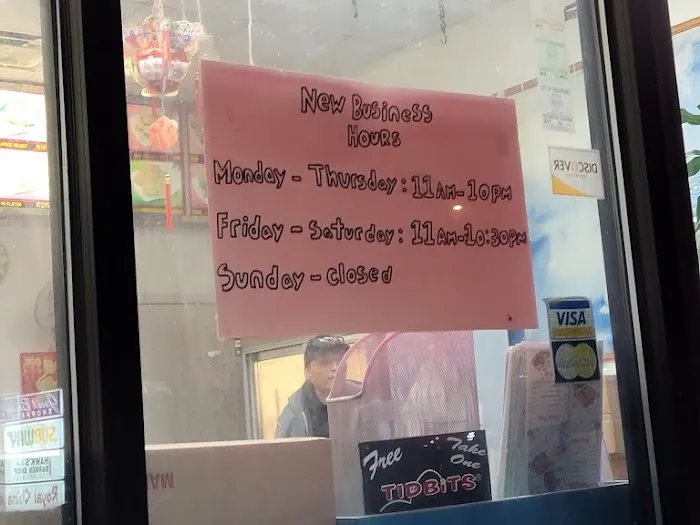 New Business
Hours
Monday - Thursday: 11AM-10PM
Friday - Saturday: 11AM-10:30PM
Sunday - Closed
DISCOVER
VISA
Free
Take
One
TIDBITS
SUBWAY
HAWK'S
BARBER SHOP
Royal China